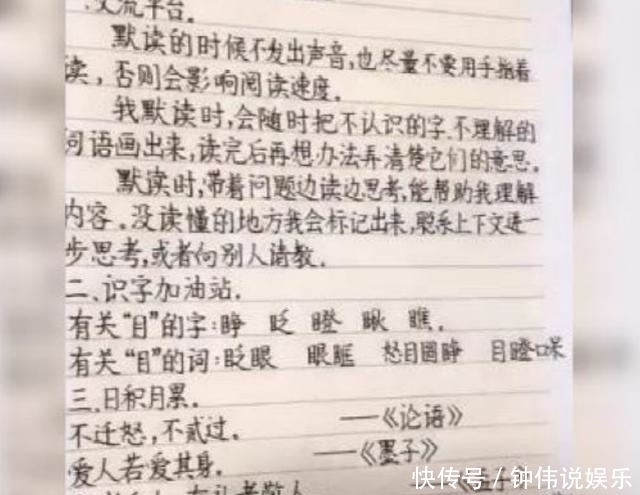 交流平台.
默读的时候不发出声音,也尽量不要用手指着
读,否则会影响阅读速度.
我默读时,会随时把不认识的字.不理解的
词语画出来,读完后再想办法弄清楚它们的意思.
默读时,带着问题边读边思考,能帮助我理解
内容.没读懂的地方我会标记出来,联系上下文进一
步思考,或者向别人请教.
二、识字加油站.
有关"目"的字:睁 眨 瞪 瞅 瞧.
有关"目"的词:眨眼 眼眶 怒目圆睁 目瞪口呆
三、日积月累.
不迁怒,不贰过. ——《论语》
爱人若爱其身. ——《墨子》
快传号/钟伟说娱乐